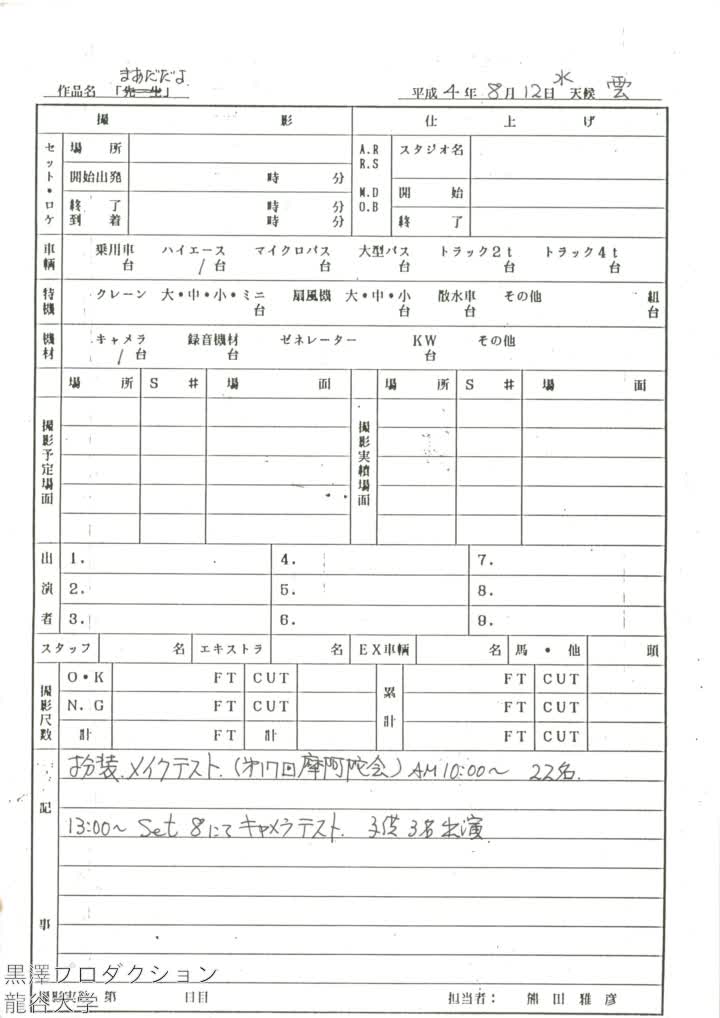 まあだだよ
作品名 「先生」 平成 4年 8月 12日 水 天候 雲
撮影 仕上げ
セット・ロケ 場所 A.R R.S スタジオ名
開始出発 時 分 M.D O.B 開始
終了 時 分 終了
到着 時 分
車輌 乗用車 台 ハイエース 1台 マイクロバス 台 大型バス 台 トラック2t 台 トラック4t 台
特機 クレーン 大・中・小・ミニ 台 扇風機 大・中・小 台 散水車 台 その他 組 台
機材 キャメラ 1台 録音機材 台 ゼネレーター KW 台 その他
撮影予定場面 場所 S # 場面 撮影実績場面 場所 S # 場面
出演者 1. 4. 7.
2. 5. 8.
3. 6. 9.
スタッフ 名 エキストラ 名 EX車輌 名 馬・他 頭
撮影尺数 O・K FT CUT 累計 FT CUT
N.G FT CUT FT CUT
計 FT 計 FT CUT
記事
扮装、メイクテスト.(第17回摩阿陀会)AM10:00〜 22名.
13:00〜 Set 8にてキャメラテスト. 子供3名出演
撮影実績 第 日目 担当者: 熊田雅彦
黒澤プロダクション
龍谷大学